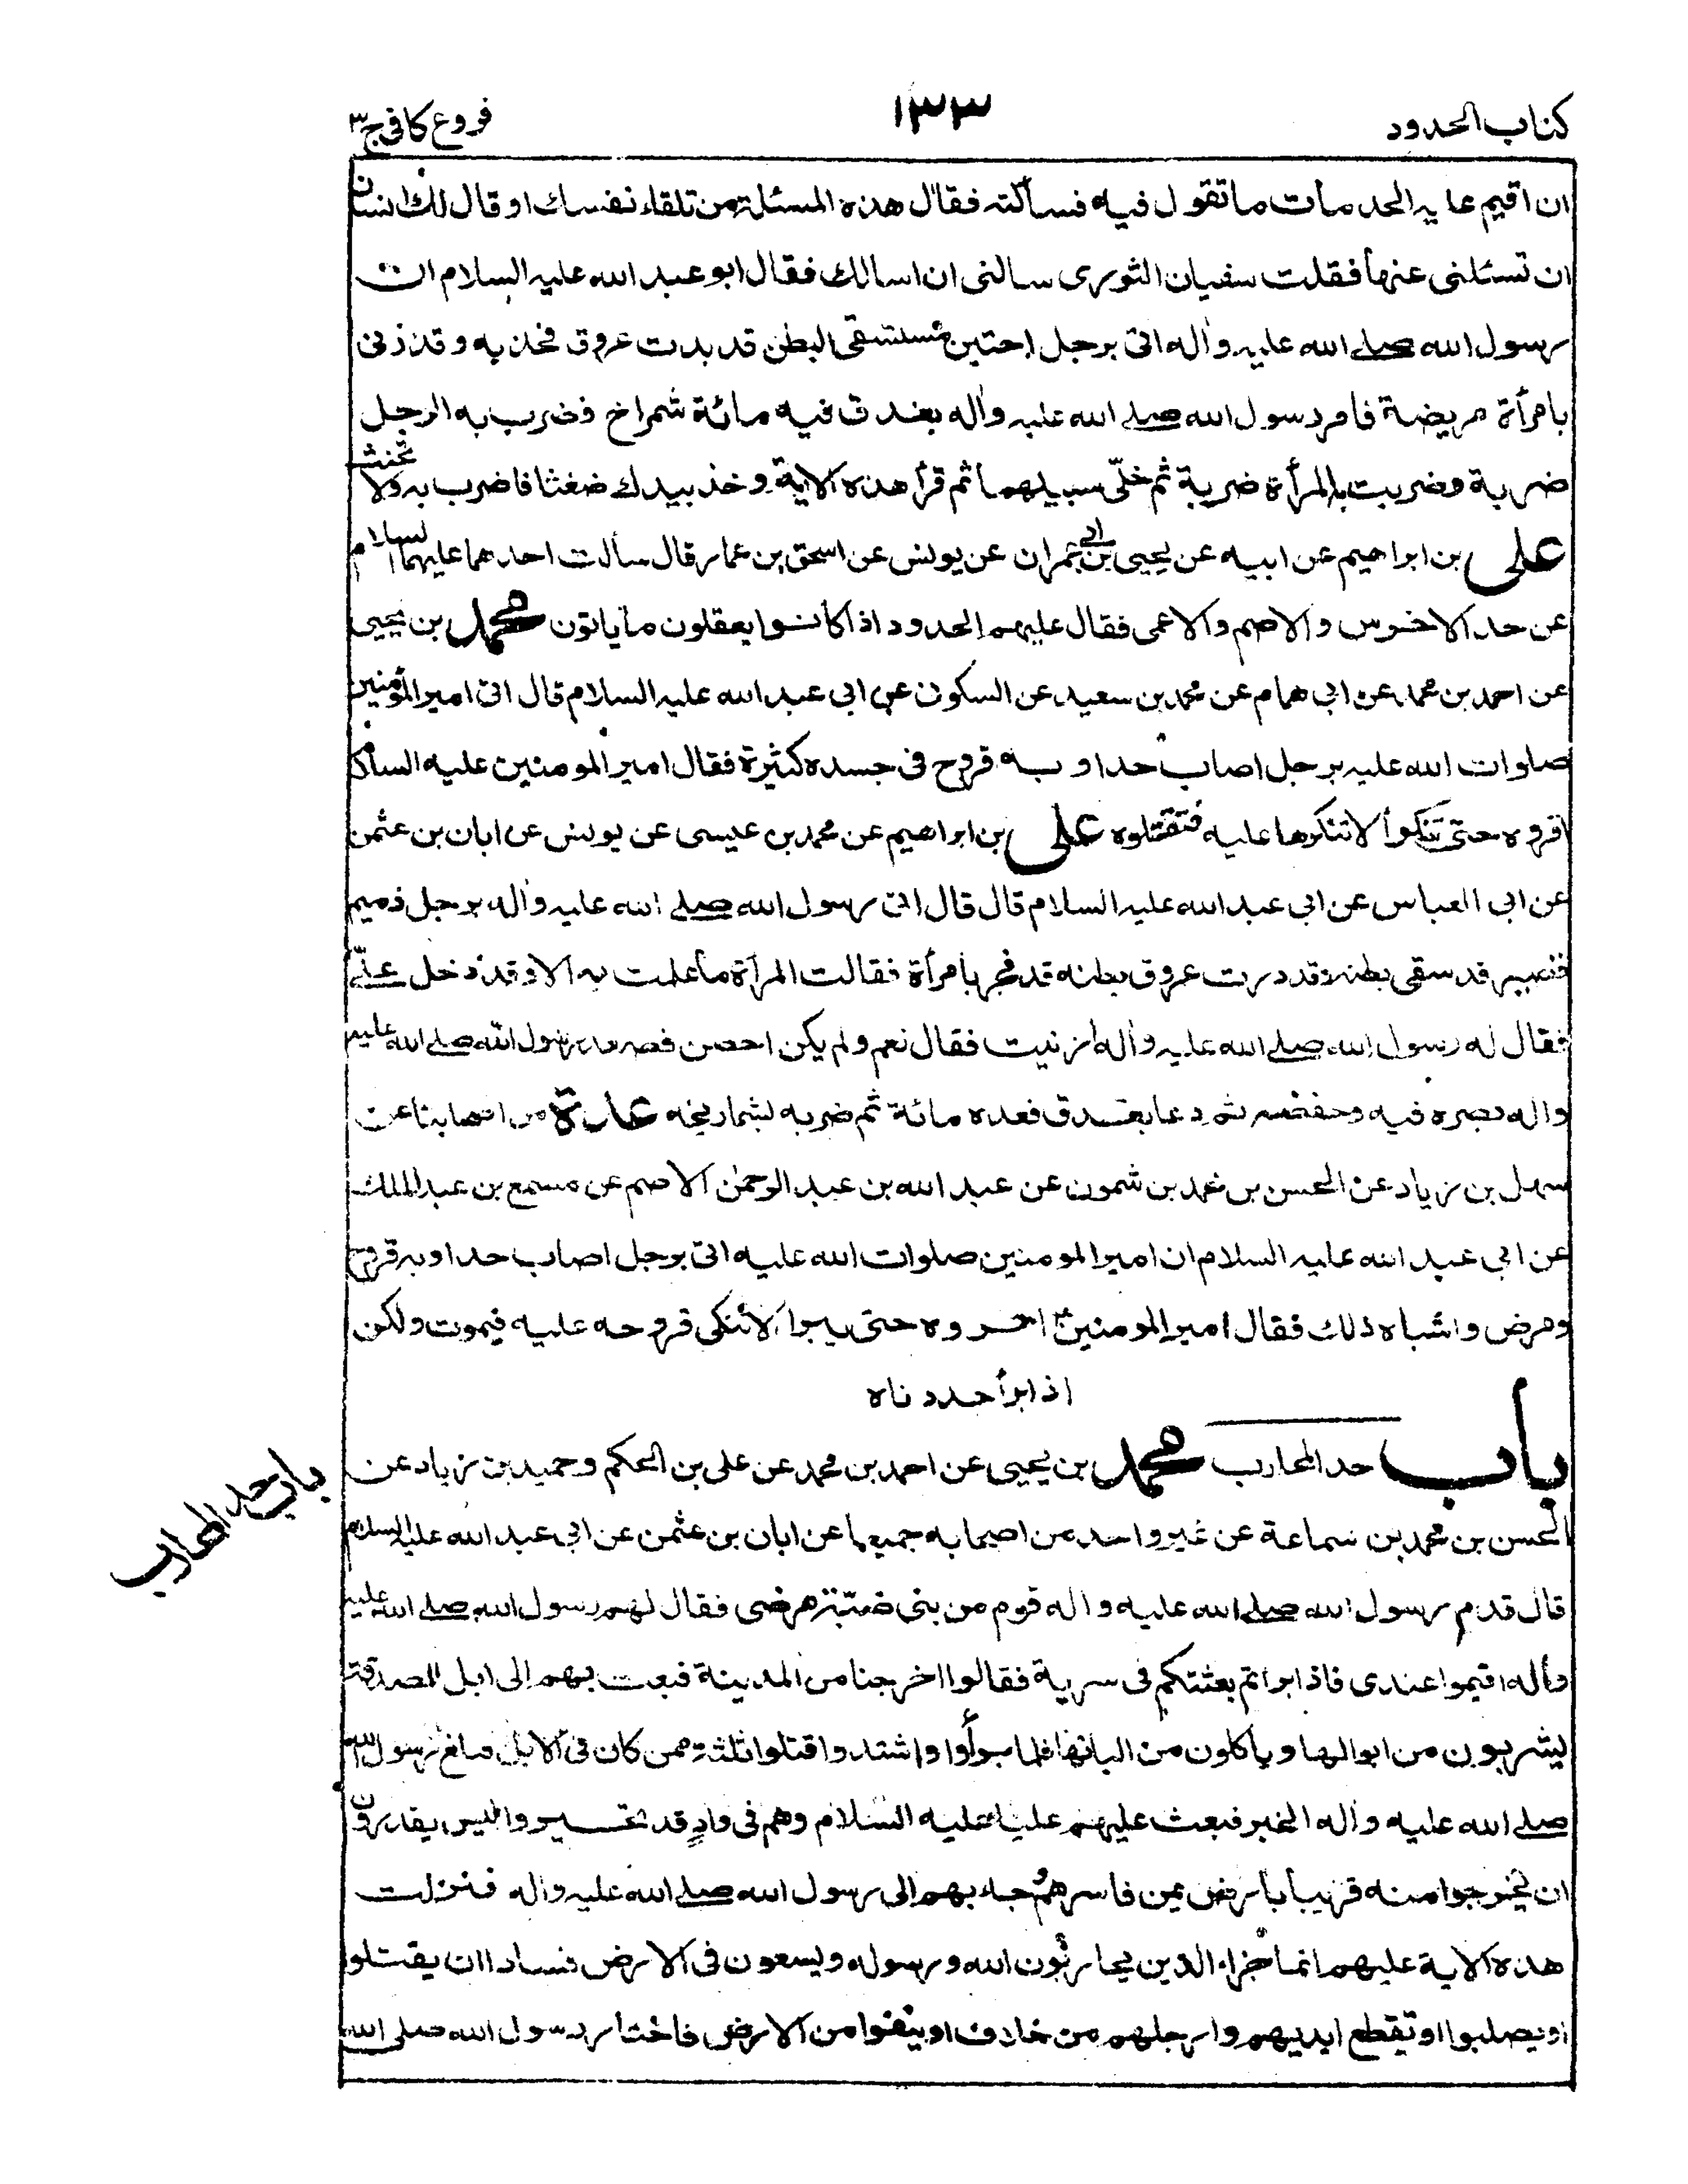 كتاب الحدود
١٣٣
فروع كافى ج٣
ان اقيم عليه الحد مات ما تقول فيه فسألته فقال هذه المسئلة من تلقاء نفسك او قال لك انسان
ان تسئلنى عنها فقلت سفيان الثورى سالنى ان اسالك فقال ابو عبد الله عليه السلام ان
رسول الله صلے الله عليه واله اتى برجل احتبن مستسقى البطن قد بدت عروق فخذيه وقد زنى
بامرأة مريضة فامر رسول الله صلے الله عليه واله بعذق فيه مائة شمراخ فضرب به الرجل
ضربة وضربت به المرأة ضربة ثم خلّى سبيلهما ثم قرأ هذه الاية وخذ بيدك ضغثا فاضرب به ولا تحنث
على بن ابراهيم عن ابيه عن يحيى بن ابى عمران عن يونس عن اسحق بن عمار قال سألت احدهما عليهما السلام
عن حد الاخرس والاصم والاعمى فقال عليهم الحدود اذا كانوا يعقلون ما ياتون محمد بن يحيى
عن احمد بن محمد عن ابى همام عن محمد بن سعيد عن السكونى عن ابى عبد الله عليه السلام قال اتى امير المؤمنين
صلوات الله عليه برجل اصاب حدا و به قروح فى جسده كثيرة فقال امير المومنين عليه السلام
اقروه حتى تبرأ لا تنكؤها عليه فتقتلوه على بن ابراهيم عن محمد بن عيسى عن يونس عن ابان بن عثمن
عن ابى العباس عن ابى عبد الله عليه السلام قال قال اتى رسول الله صلے الله عليه واله برجل ذميم
قصير قد سقى بطنه وقد درت عروق بطنه قد فجر بامرأة فقالت المرأة ما علمت به الا وقد دخل علىّ
فقال له رسول الله صلے الله عليه واله ازنيت فقال نعم ولم يكن احصن فصعد رسول الله صلے الله عليه
واله بصره فيه وخفضه ثم دعا بعذق فعده مائة ثم ضربه بشماريخه عدة من اصحابنا عن
سهل بن زياد عن الحسن بن محمد بن شمون عن عبد الله بن عبد الرحمن الاصم عن مسمع بن عبد الملك
عن ابى عبد الله عليه السلام ان امير المومنين صلوات الله عليه اتى برجل اصاب حدا وبه قروح
ومرض واشباه ذلك فقال امير المومنين اخروه حتى يبرا لا تنكى قروحه عليه فيموت ولكن
اذا برأ حددناه
باب حد المحارب محمد بن يحيى عن احمد بن محمد عن على بن الحكم وحميد بن زياد عن
باب حد المحارب
الحسن بن محمد بن سماعة عن غير واحد من اصحابه جميعا عن ابان بن عثمن عن ابى عبد الله عليه السلام
قال قدم رسول الله صلے الله عليه واله قوم من بنى ضبّة مرضى فقال لهم رسول الله صلے الله عليه
واله اقيموا عندى فاذا برأتم بعثتكم فى سرية فقالوا اخرجنا من المدينة فبعث بهم الى ابل الصدقة
يشربون من ابوالها وياكلون من البانها فلما برأوا واشتدوا قتلوا ثلثة ممن كان فى الابل فبلغ رسول الله
صلے الله عليه واله الخبر فبعث عليهم عليا عليه السلام وهم فى وادٍ قد تحيروا ليس يقدرون
ان يخرجوا منه قريبا بارض يمن فاسرهم وجاء بهم الى رسول الله صلے الله عليه واله فنزلت
هذه الاية عليهم انما جزاء الذين يحاربون الله ورسوله ويسعون فى الارض فسادا ان يقتلوا
او يصلبوا او تقطع ايديهم وارجلهم من خلاف او ينفوا من الارض فاختار رسول الله صلى الله